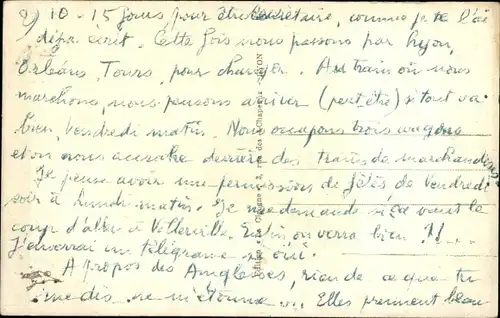 2) 10 - 15 jours pour être secrétaire, comme je te l'ai
déja écrit. Cette fois nous passons par Lyon,
Orléans, Tours, pour changer. Au train où nous
marchons, nous pensons arriver (peut être) si tout va
bien, Vendredi matin. Nous occupons trois wagons
et on nous accroche derrière des trains de marchandises
Je pense avoir une permissions de fêtes de Vendredi
soir à Lundi matin. Je me demande si ça vaut le
coup d'aller à Villerville. Enfin on verra bien !!....
J'enverrai un télégramme si oui.
A propos des Anglaises, rien de ce que tu
me dis ne m'étonne... Elles prennent beau-